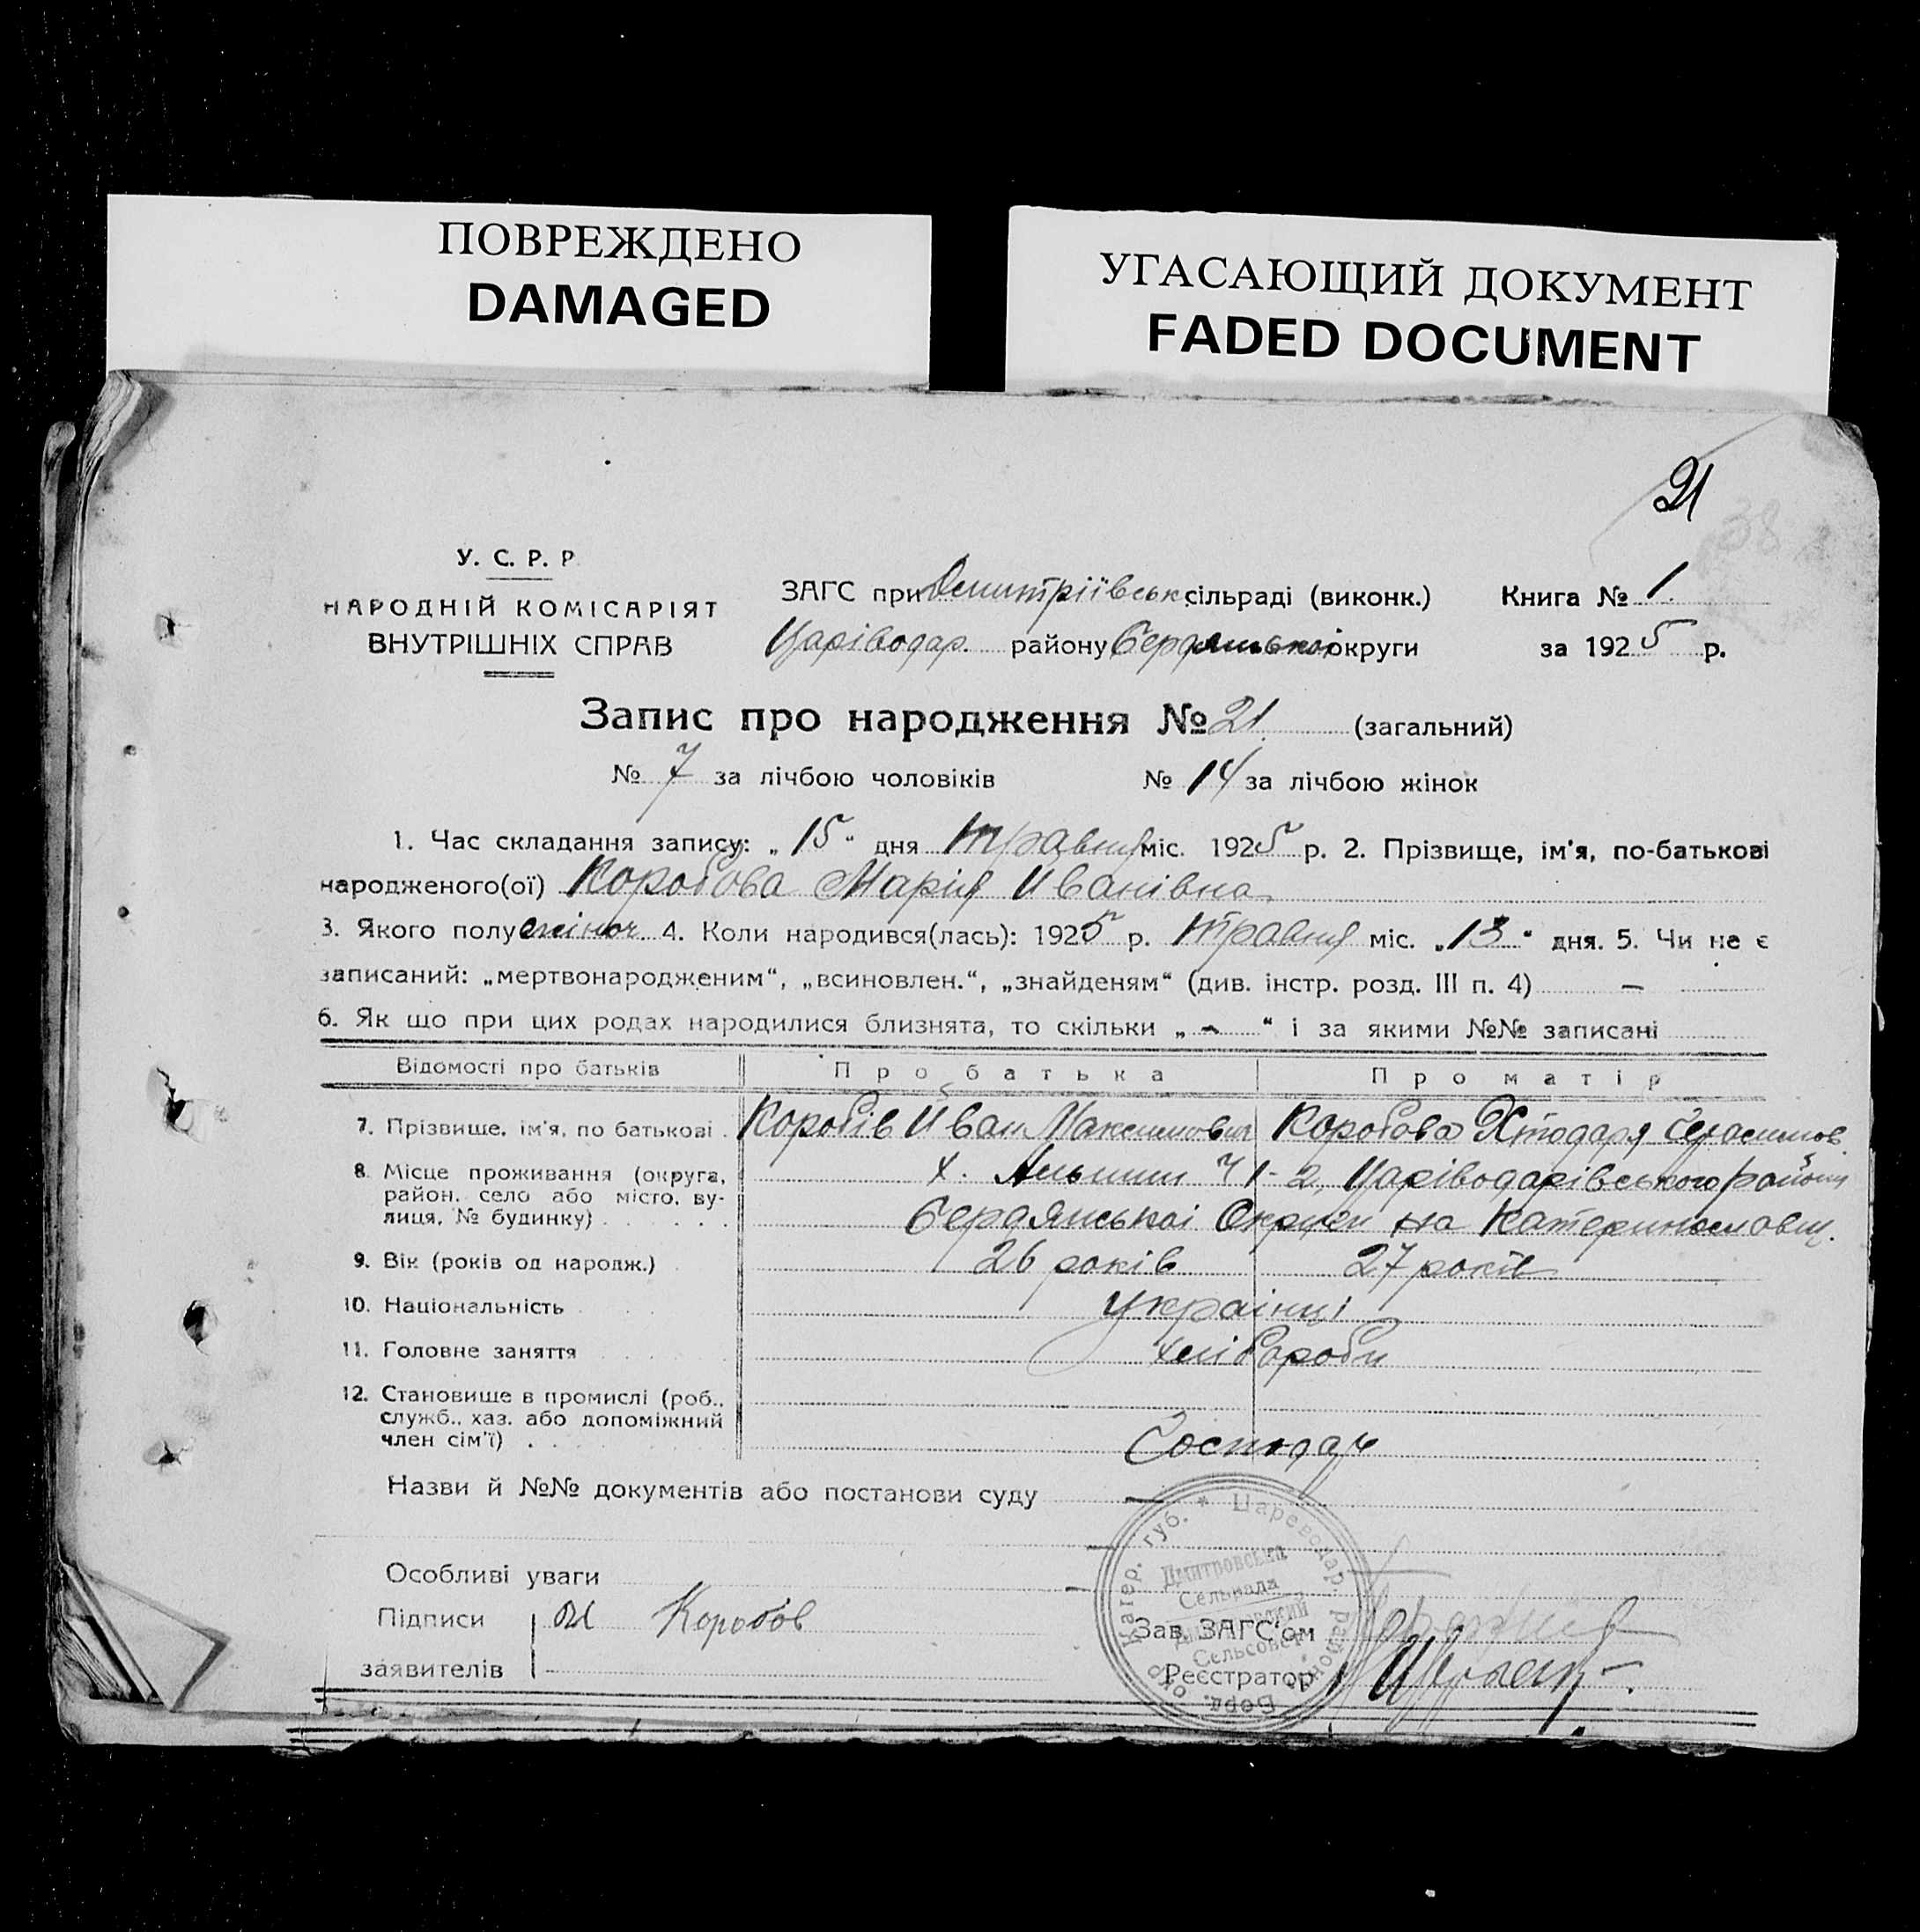 ПОВРЕЖДЕНО
DAMAGED
УГАСАЮЩИЙ ДОКУМЕНТ
FADED DOCUMENT
21
38
У. С. Р. Р
НАРОДНІЙ КОМІСАРІЯТ
ВНУТРІШНІХ СПРАВ
ЗАГС при Дмитріївськ. сільраді (виконк.)
Царіводар. району Бердянської округи
Книга № 1.
за 1925 р.
Запис про народження № 21. (загальний)
№ 7 за лічбою чоловіків № 14 за лічбою жінок
1. Час складання запису: „ 15 “ дня травня міс. 1925 р. 2. Прізвище, ім'я, по-батькові
народженого(ої) Коробова Марія Иванівна
3. Якого полу жіноч. 4. Коли народився(лась): 1925 р. травня міс. „ 13 “ дня. 5. Чи не є
записаний: „мертвонародженим“, „всиновлен.“, „знайденям“ (див. інстр. розд. III п. 4) —
6. Як що при цих родах народилися близнята, то скільки „ - “ і за якими №№ записані
Відомості про батьків Про батька Про матір
7. Прізвище, ім'я, по батькові Коробів Иван Максимович Коробова Герасимов.
8. Місце проживання (округа, х. 1-2, Царіводарівського району
район, село або місто, ву-
лиця, № будинку) Бердянської Округи на Катеринославщ.
9. Вік (років од народж.) 26 років 27 років
10. Національність українці
11. Головне заняття хлібороби
12. Становище в промислі (роб.,
служб., хаз. або допоміжний
член сім'ї) Господар
Назви й №№ документів або постанови суду —
Особливі уваги
Підписи Коробов
заявителів
Зав. ЗАГС'ом
Реєстратор
* Цареводар. району Берд. окр. Катер. губ.
Дмитровська
Сельрада
Сельсовет